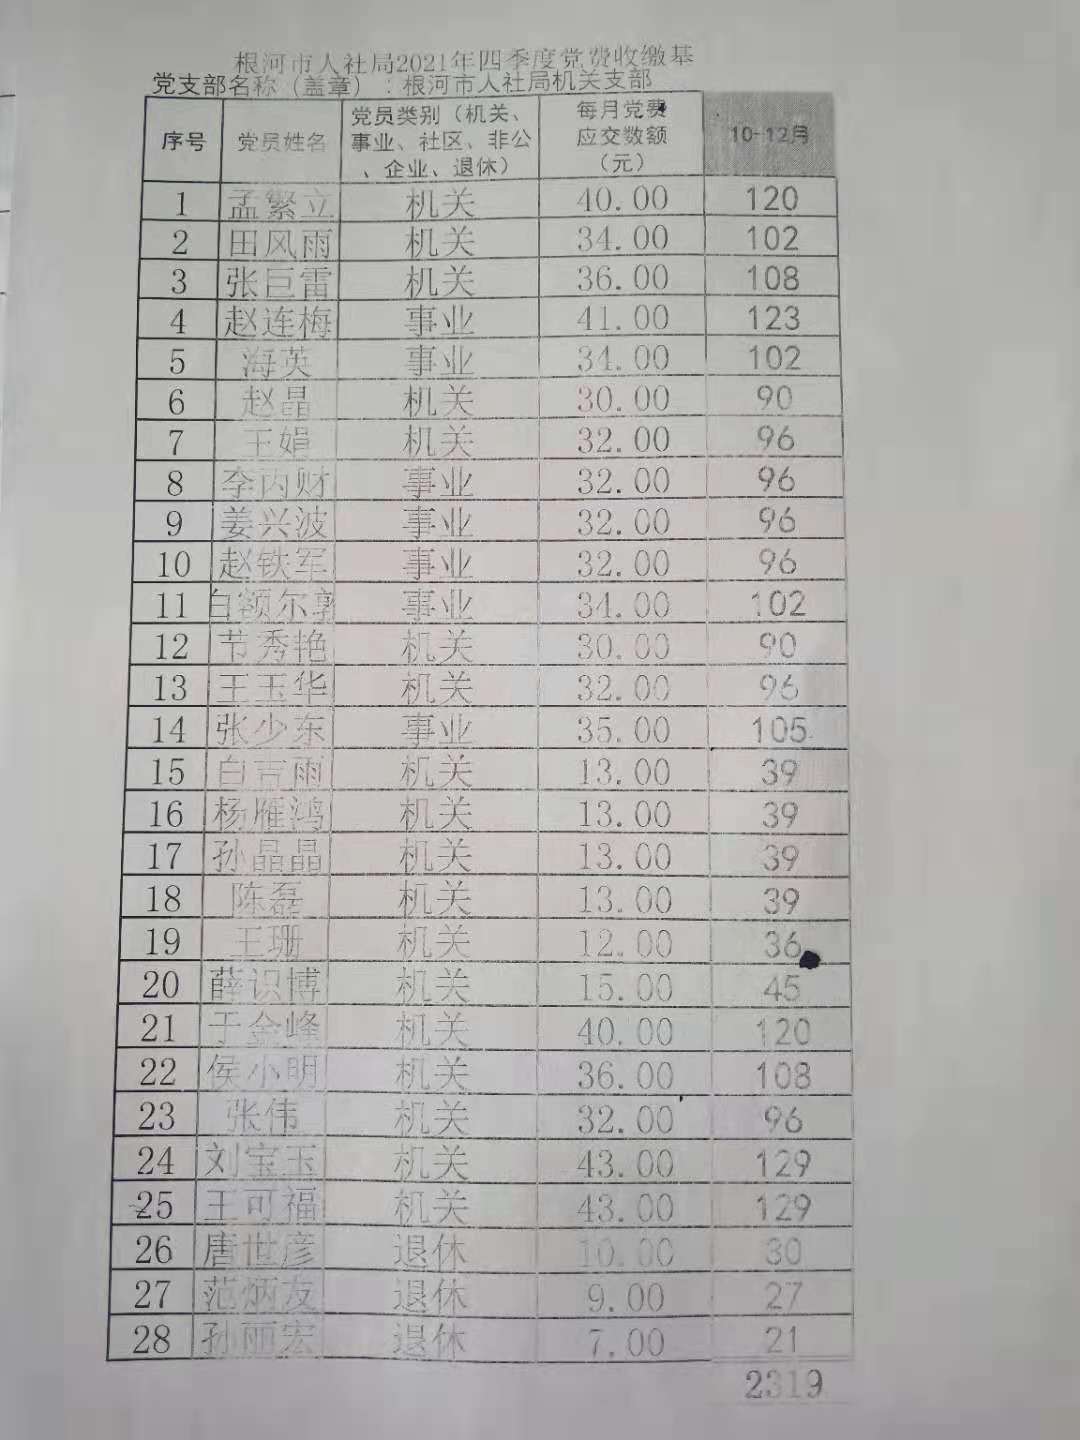 根河市人社局2021年四季度党费收缴基
党支部名称（盖章）：根河市人社局机关支部
序号 党员姓名 党员类别（机关、事业、社区、非公、企业、退休） 每月党费应交数额（元） 10-12月
1 孟繁立 机关 40.00 120
2 田风雨 机关 34.00 102
3 张巨雷 机关 36.00 108
4 赵连梅 事业 41.00 123
5 海英 事业 34.00 102
6 赵晶 机关 30.00 90
7 王娟 机关 32.00 96
8 李丙财 事业 32.00 96
9 姜兴波 事业 32.00 96
10 赵铁军 事业 32.00 96
11 白额尔敦 事业 34.00 102
12 节秀艳 机关 30.00 90
13 王玉华 机关 32.00 96
14 张少东 事业 35.00 105
15 白吉雨 机关 13.00 39
16 杨雁鸿 机关 13.00 39
17 孙晶晶 机关 13.00 39
18 陈磊 机关 13.00 39
19 王珊 机关 12.00 36
20 薛识博 机关 15.00 45
21 于金峰 机关 40.00 120
22 侯小明 机关 36.00 108
23 张伟 机关 32.00 96
24 刘宝玉 机关 43.00 129
25 王可福 机关 43.00 129
26 唐世彦 退休 10.00 30
27 范炳友 退休 9.00 27
28 孙丽宏 退休 7.00 21
2319